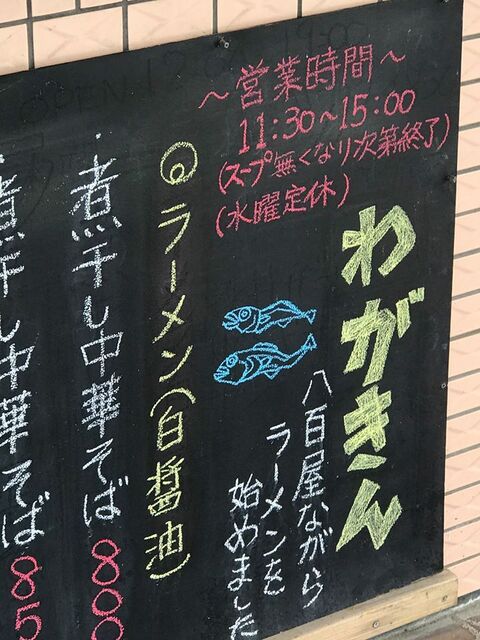 ～営業時間～
11:30～15:00
(スープ無くなり次第終了)
(水曜定休)
わがきん
八百屋ながら
ラーメンを
始めました
◎ラーメン(白醤油)
・煮干し中華そば 800
・煮干し中華そば 85